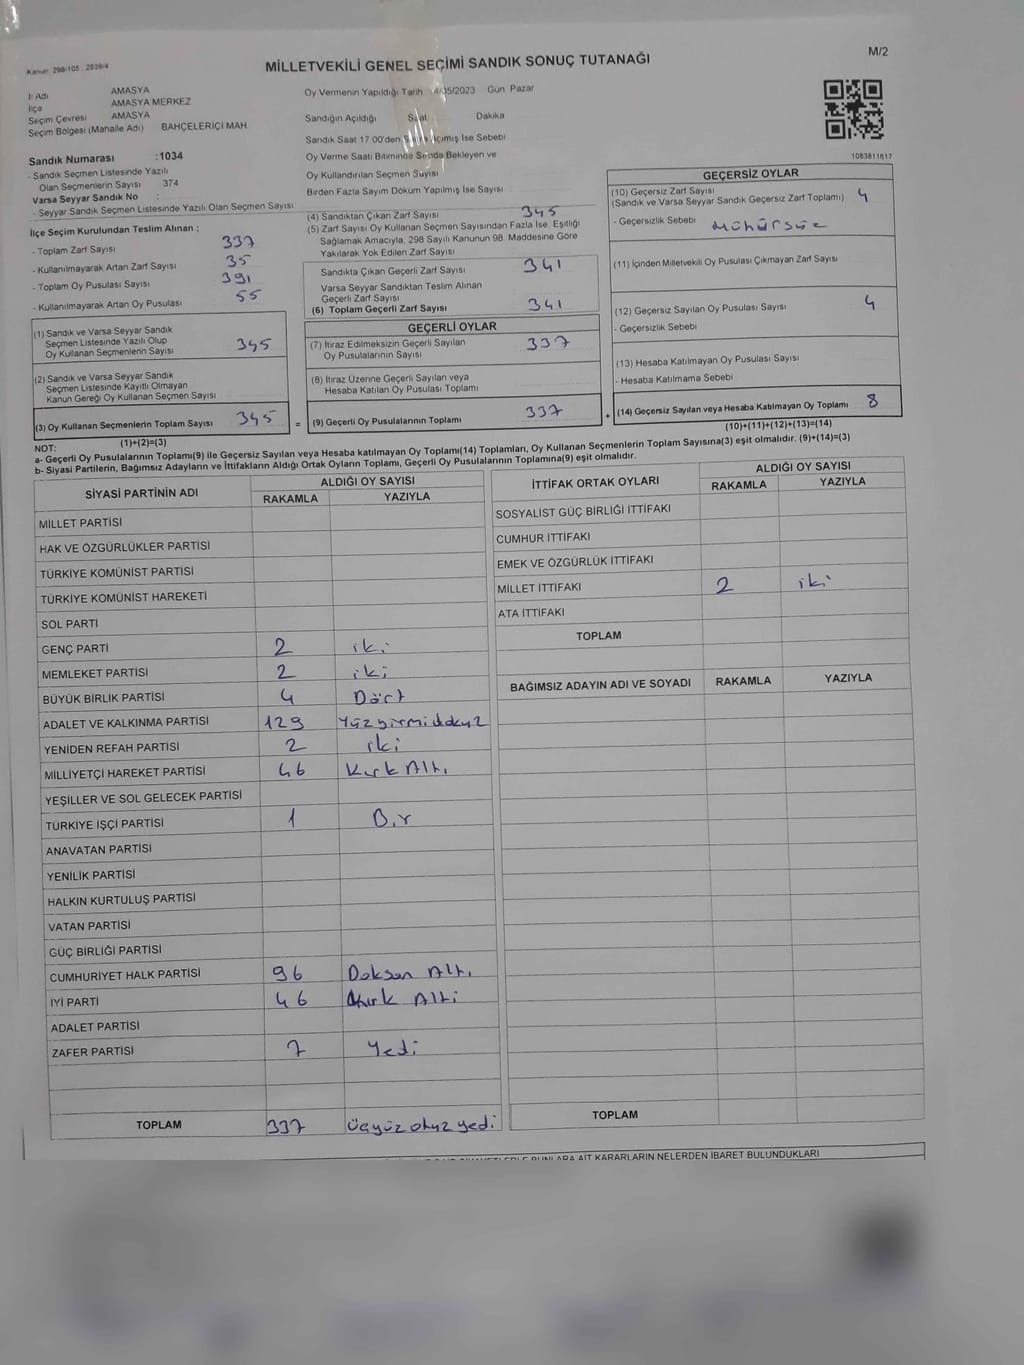 Kanun: 298/105 2839/4
MİLLETVEKİLİ GENEL SEÇİMİ SANDIK SONUÇ TUTANAĞI
M/2
İl Adı AMASYA
İlçe AMASYA MERKEZ
Seçim Çevresi AMASYA
Seçim Bölgesi (Mahalle Adı) BAHÇELERİÇİ MAH
Sandık Numarası :1034
- Sandık Seçmen Listesinde Yazılı
Olan Seçmenlerin Sayısı 374
Varsa Seyyar Sandık No :
- Seyyar Sandık Seçmen Listesinde Yazılı Olan Seçmen Sayısı
Oy Vermenin Yapıldığı Tarih 4/05/2023 Gün Pazar
Sandığın Açıldığı Saat Dakika
Sandık Saat 17:00'den Açılmış İse Sebebi
Oy Verme Saati Bitiminde Sırada Bekleyen ve
Oy Kullandırılan Seçmen Sayısı
Birden Fazla Sayım Döküm Yapılmış İse Sayısı
1083811617
İlçe Seçim Kurulundan Teslim Alınan ;
- Toplam Zarf Sayısı 337
- Kullanılmayarak Artan Zarf Sayısı 35
- Toplam Oy Pusulası Sayısı 391
- Kullanılmayarak Artan Oy Pusulası 55
(1) Sandık ve Varsa Seyyar Sandık
Seçmen Listesinde Yazılı Olup
Oy Kullanan Seçmenlerin Sayısı 345
(2) Sandık ve Varsa Seyyar Sandık
Seçmen Listesinde Kayıtlı Olmayan
Kanun Gereği Oy Kullanan Seçmen Sayısı
(3) Oy Kullanan Seçmenlerin Toplam Sayısı 345
(1)+(2)=(3)
(4) Sandıktan Çıkan Zarf Sayısı 345
(5) Zarf Sayısı Oy Kullanan Seçmen Sayısından Fazla İse, Eşitliği
Sağlamak Amacıyla, 298 Sayılı Kanunun 98. Maddesine Göre
Yakılarak Yok Edilen Zarf Sayısı
Sandıkta Çıkan Geçerli Zarf Sayısı 341
Varsa Seyyar Sandıktan Teslim Alınan
Geçerli Zarf Sayısı
(6) Toplam Geçerli Zarf Sayısı 341
GEÇERLİ OYLAR
(7) İtiraz Edilmeksizin Geçerli Sayılan
Oy Pusulalarının Sayısı 337
(8) İtiraz Üzerine Geçerli Sayılan veya
Hesaba Katılan Oy Pusulası Toplamı
= (9) Geçerli Oy Pusulalarının Toplamı 337
GEÇERSİZ OYLAR
(10) Geçersiz Zarf Sayısı
(Sandık ve Varsa Seyyar Sandık Geçersiz Zarf Toplamı) 4
- Geçersizlik Sebebi Mühürsüz
(11) İçinden Milletvekili Oy Pusulası Çıkmayan Zarf Sayısı
(12) Geçersiz Sayılan Oy Pusulası Sayısı 4
- Geçersizlik Sebebi
(13) Hesaba Katılmayan Oy Pusulası Sayısı
- Hesaba Katılmama Sebebi
+ (14) Geçersiz Sayılan veya Hesaba Katılmayan Oy Toplamı 8
(10)+(11)+(12)+(13)=(14)
NOT:
a- Geçerli Oy Pusulalarının Toplamı(9) ile Geçersiz Sayılan veya Hesaba katılmayan Oy Toplamı(14) Toplamları, Oy Kullanan Seçmenlerin Toplam Sayısına(3) eşit olmalıdır. (9)+(14)=(3)
b- Siyasi Partilerin, Bağımsız Adayların ve İttifakların Aldığı Ortak Oyların Toplamı, Geçerli Oy Pusulalarının Toplamına(9) eşit olmalıdır.
SİYASİ PARTİNİN ADI ALDIĞI OY SAYISI
RAKAMLA YAZIYLA
MİLLET PARTİSİ
HAK VE ÖZGÜRLÜKLER PARTİSİ
TÜRKİYE KOMÜNİST PARTİSİ
TÜRKİYE KOMÜNİST HAREKETİ
SOL PARTİ
GENÇ PARTİ 2 iki
MEMLEKET PARTİSİ 2 iki
BÜYÜK BİRLİK PARTİSİ 4 Dört
ADALET VE KALKINMA PARTİSİ 129 Yüzyirmidokuz
YENİDEN REFAH PARTİSİ 2 iki
MİLLİYETÇİ HAREKET PARTİSİ 46 Kırk Altı
YEŞİLLER VE SOL GELECEK PARTİSİ
TÜRKİYE İŞÇİ PARTİSİ 1 Bir
ANAVATAN PARTİSİ
YENİLİK PARTİSİ
HALKIN KURTULUŞ PARTİSİ
VATAN PARTİSİ
GÜÇ BİRLİĞİ PARTİSİ
CUMHURİYET HALK PARTİSİ 96 Doksan Altı
İYİ PARTİ 46 Kırk Altı
ADALET PARTİSİ
ZAFER PARTİSİ 7 Yedi
TOPLAM 337 üçyüz otuz yedi
İTTİFAK ORTAK OYLARI ALDIĞI OY SAYISI
RAKAMLA YAZIYLA
SOSYALİST GÜÇ BİRLİĞİ İTTİFAKI
CUMHUR İTTİFAKI
EMEK VE ÖZGÜRLÜK İTTİFAKI
MİLLET İTTİFAKI 2 iki
ATA İTTİFAKI
TOPLAM
BAĞIMSIZ ADAYIN ADI VE SOYADI RAKAMLA YAZIYLA
TOPLAM
BUNLARA AİT KARARLARIN NELERDEN İBARET BULUNDUKLARI